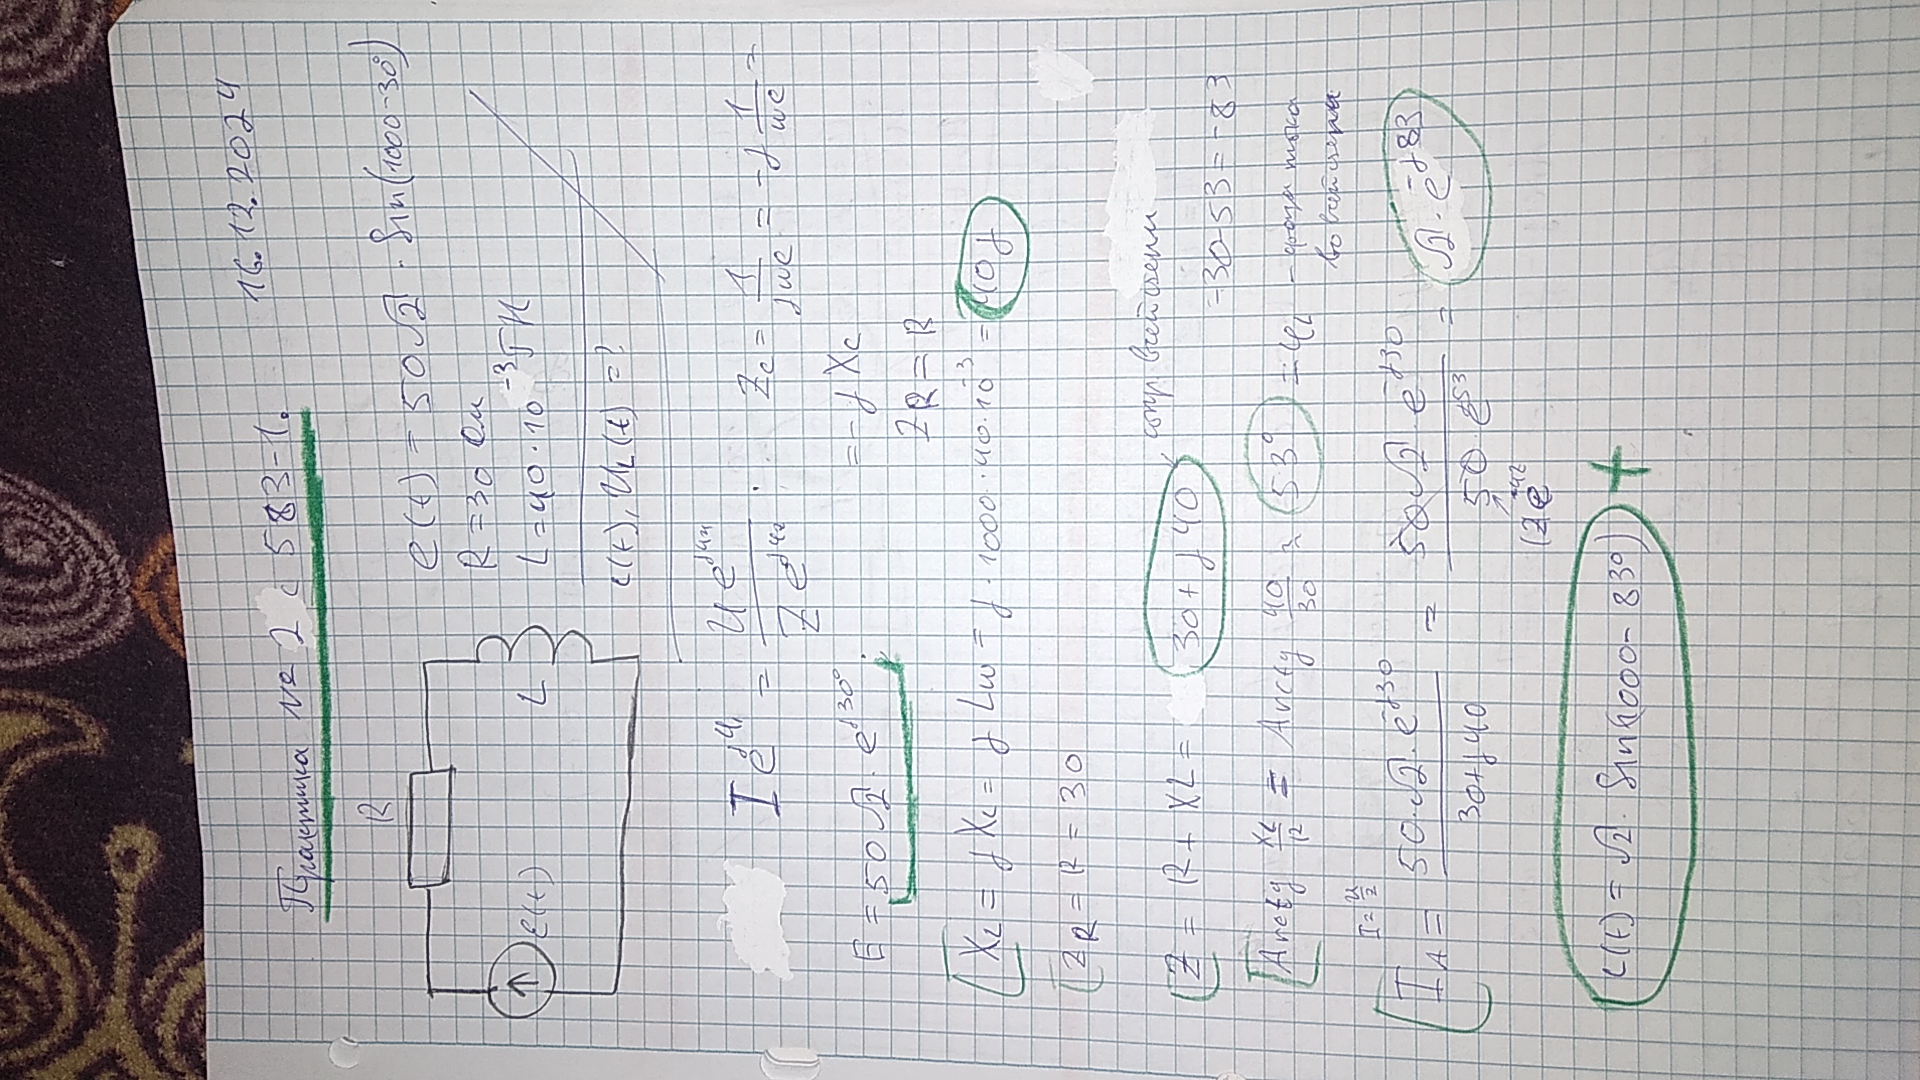 16.12.2024
Практика № 2 с 583-1.
R
e(t) = 50√2 · Sin(1000-30°)
R = 30 Ом
E(t)
L
L = 40 · 10⁻³ ГН
i(t), U_L(t) = ?
I e^jφi = U e^jφu / Z e^jφz .
Z_C = 1/jωc = -j 1/ωc =
= -j X_C
E = 50√2 · e^j30° .
Z_R = R
X_L = j X_L = j Lω = j · 1000 · 40 · 10⁻³ = 40j
Z_R = R = 30
сопр.
Z = R + XL = 30 + j 40
-30-53 = -83
Arctg X_L/R = Arctg 40/30 ≈ 53° = φz - фаза тока
I = U/Z
I_A = 50·√2·e^-j30 / 30+j40 = 50√2·e^-j30 / 50·e^j53 = √2·e^-j83
i(t) = √2 · Sin(1000 - 83°) +